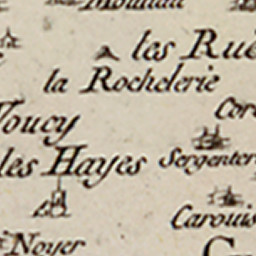 les Ruè
la Rochelerie
Voucy
les Hayes
Sergenter
Carouis
Noyer